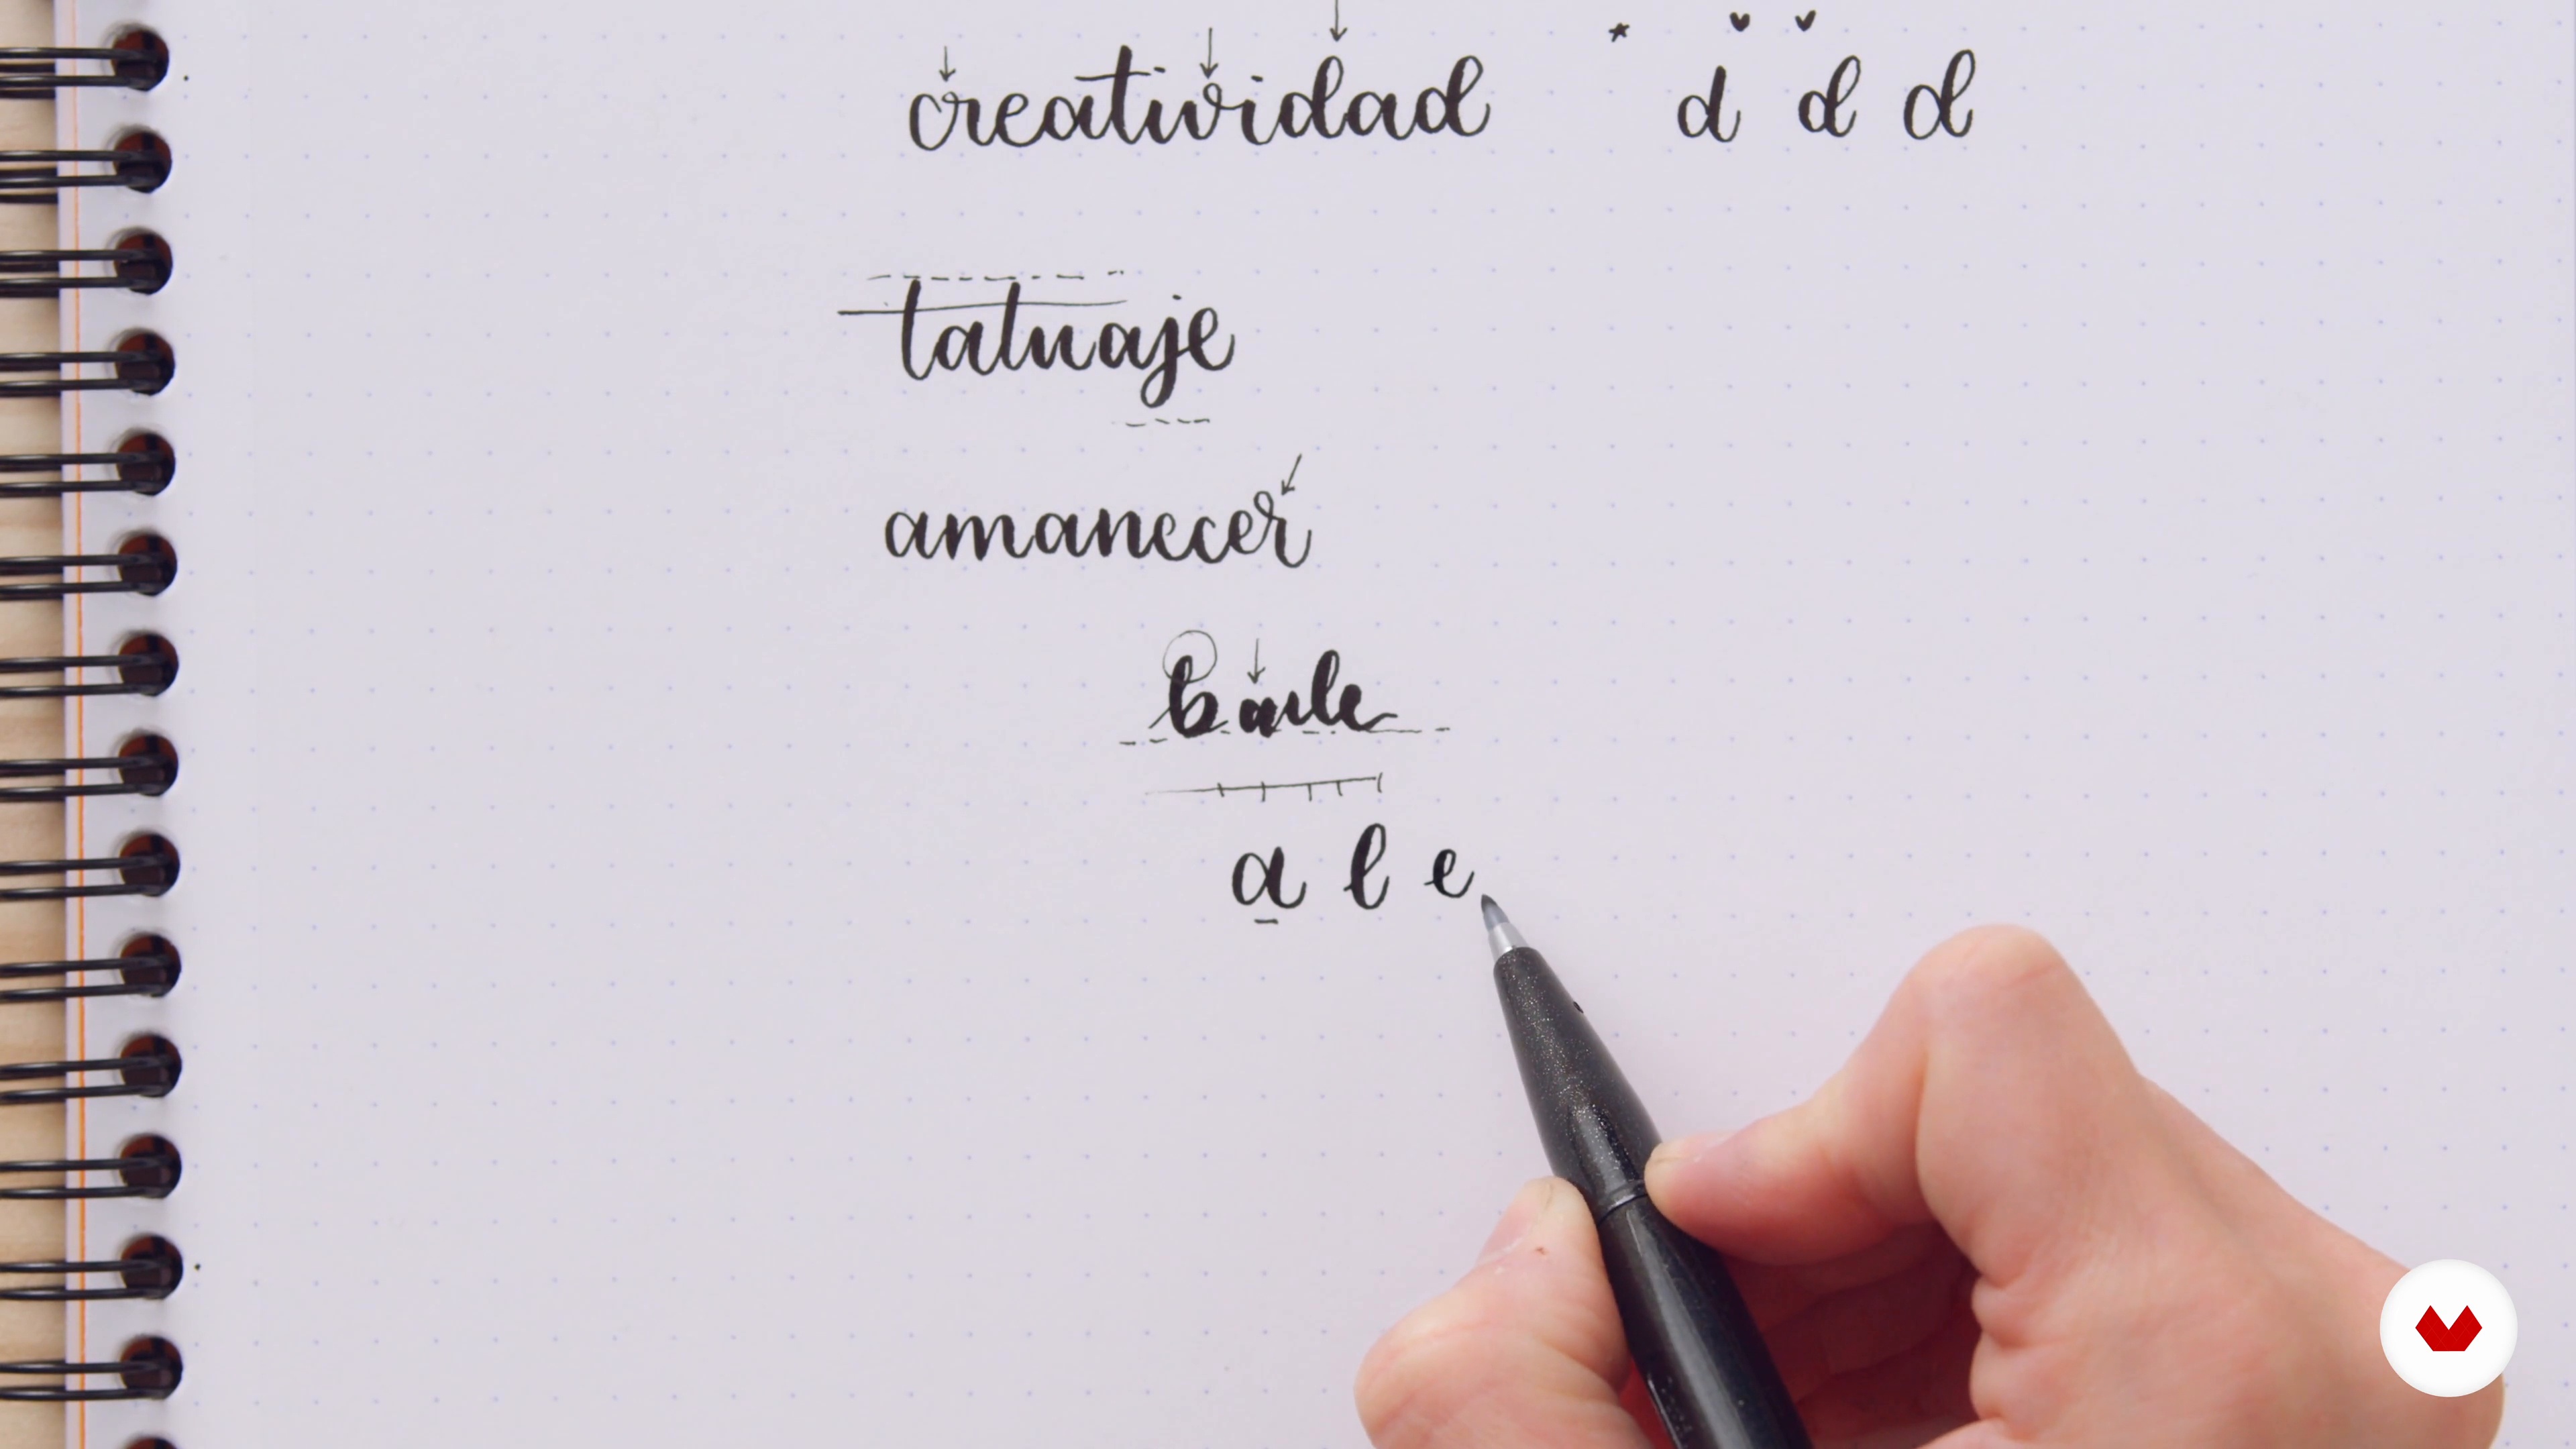 creatividad d d d
tatuaje
amanecer
baile
a l e